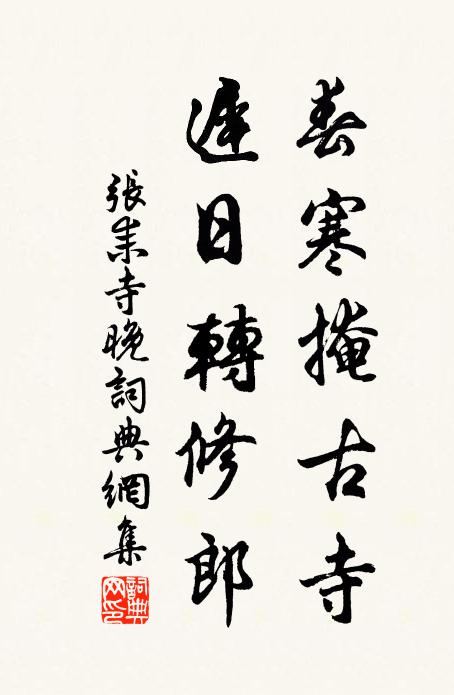 春寒掩古寺
遲日轉修郎
張耒寺晚詞典網集
詞典
网印